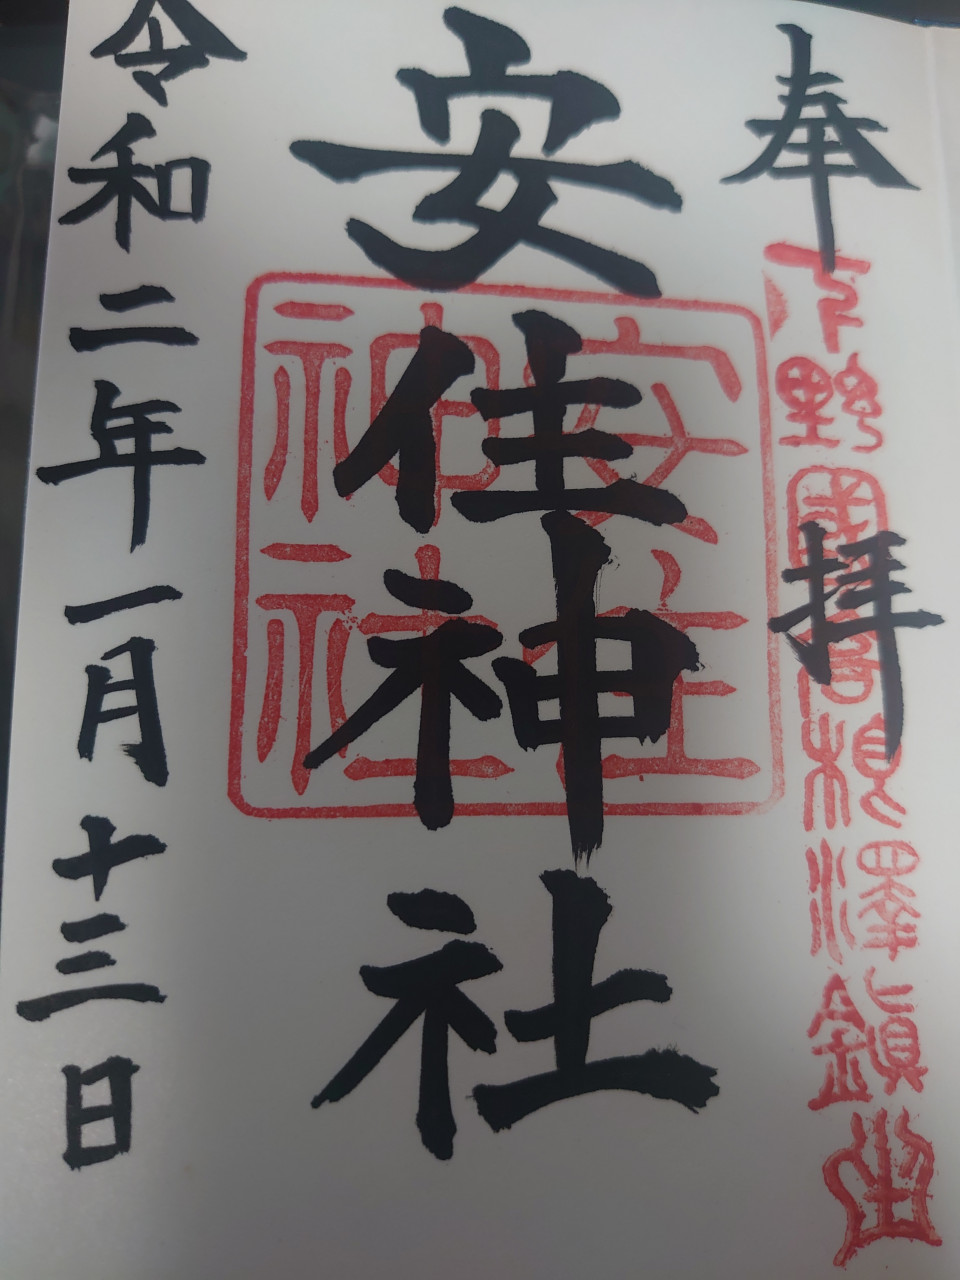 奉拝
下野國高根澤鎮
安住神社
安住
神社
令和二年一月十三日